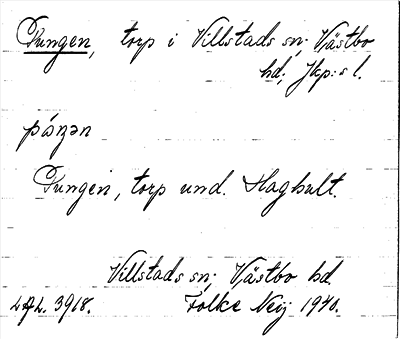 Pungen, torp i Villstads sn; Västbo
hd; Jkp:s l.
påŋən
Pungen, torp und. Haghult.
Villstads sn; Västbo hd
LAL. 3918. Folke Neij 1940.